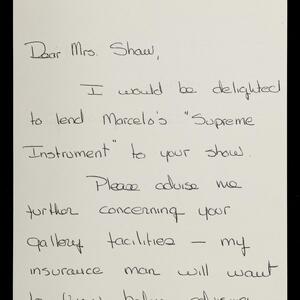 Dear Mrs. Shaw,
I would be delighted
to lend Marcelo's "Supreme
Instrument" to your show.
Please advise me
further concerning your
gallery facilities — my
insurance man will want
to